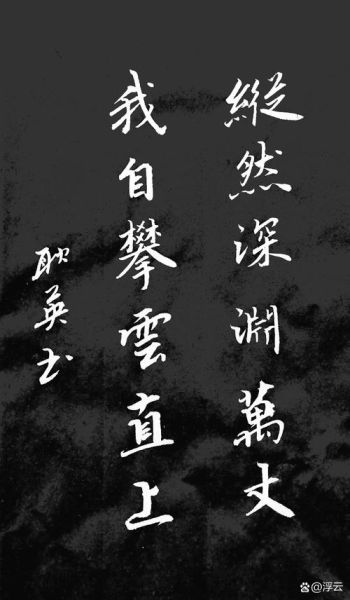 縱然深淵萬丈
我自攀雲直上
耿英書
@浮云